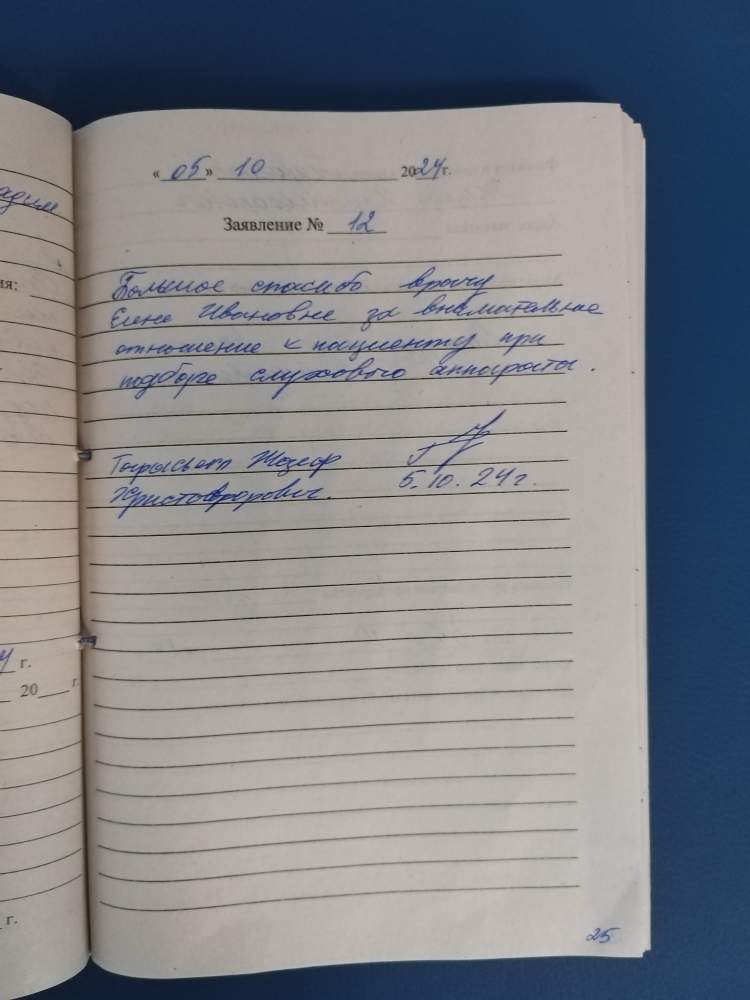 «05» 10 2024г.
Заявление № 12
Большое спасибо врачу
Елене Ивановне за внимательное
отношение к пациенту при
подборе слухового аппарата.
Жозеф
Христофорович.
5.10.24г.
ия:
г.
20 г.
г.
25